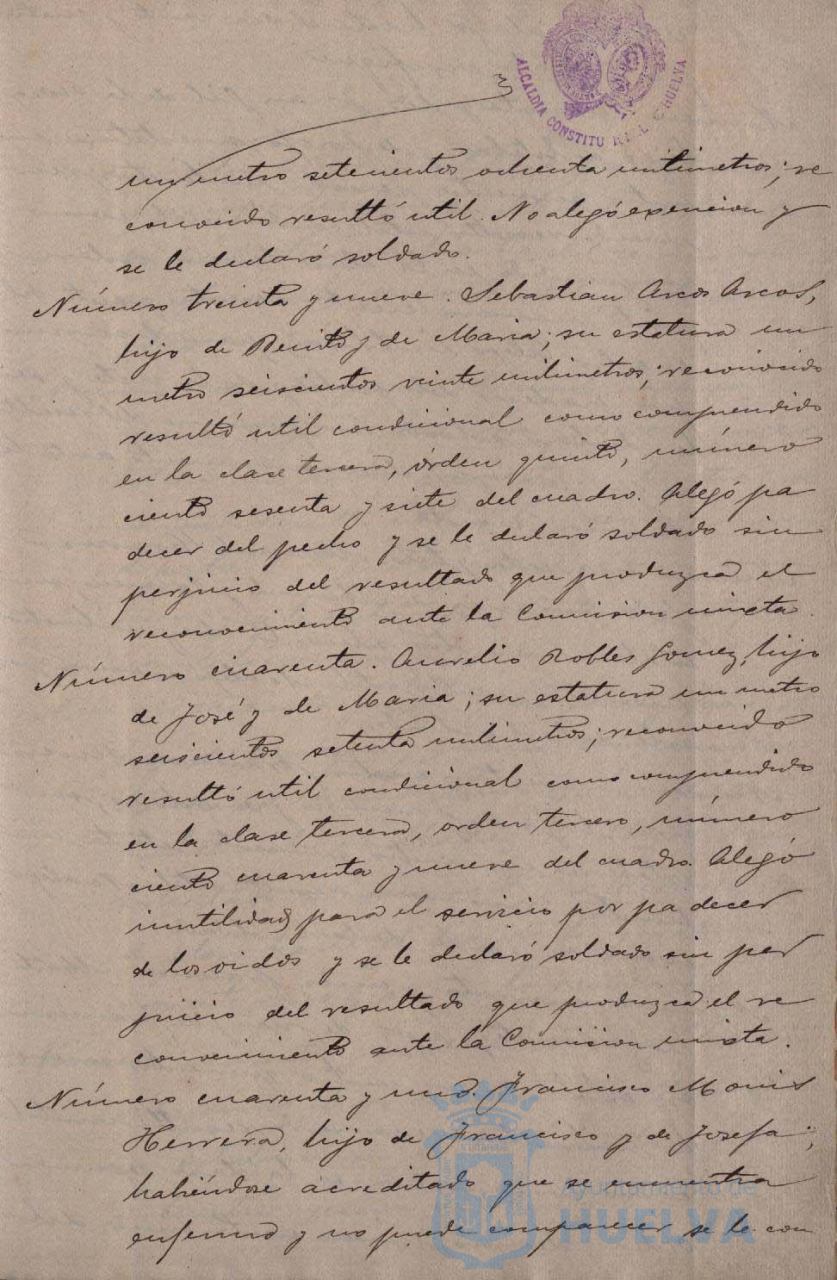 ALCALDIA CONSTITU HUELVA
un metro setecientos ochenta milimetros; re
conocido resultó util. No alegó exencion y
se le declaró soldado.
Número treinta y nueve. Sebastian Arcos Arcos,
hijo de Benito y de Maria; su estatura un
metro seiscientos veinte milimetros; reconocido
resultó util condicional como comprendido
en la clase tercera, órden quinto, número
ciento sesenta y siete del cuadro. Alegó pa
decer del pecho y se le declaró soldado sin
perjuicio del resultado que produzca el
reconocimiento ante la Comision mixta.
Número cuarenta. Aurelio Robles Gomez, hijo
de José y de Maria; su estatura un metro
seiscientos setenta milimetros; reconocido
resultó util condicional como comprendido
en la clase tercera, orden tercero, número
ciento cuarenta y nueve del cuadro. Alegó
inutilidad para el servicio por padecer
de los oidos y se le declaró soldado sin per
juicio del resultado que produzca el re
conocimiento ante la Comision mixta.
Número cuarenta y uno. Francisco Monis
Herrera, hijo de Francisco y de Josefa;
habiéndose acreditado que se encuentra
enfermo y no puede comparecer se le con
Ayuntamiento de
HUELVA